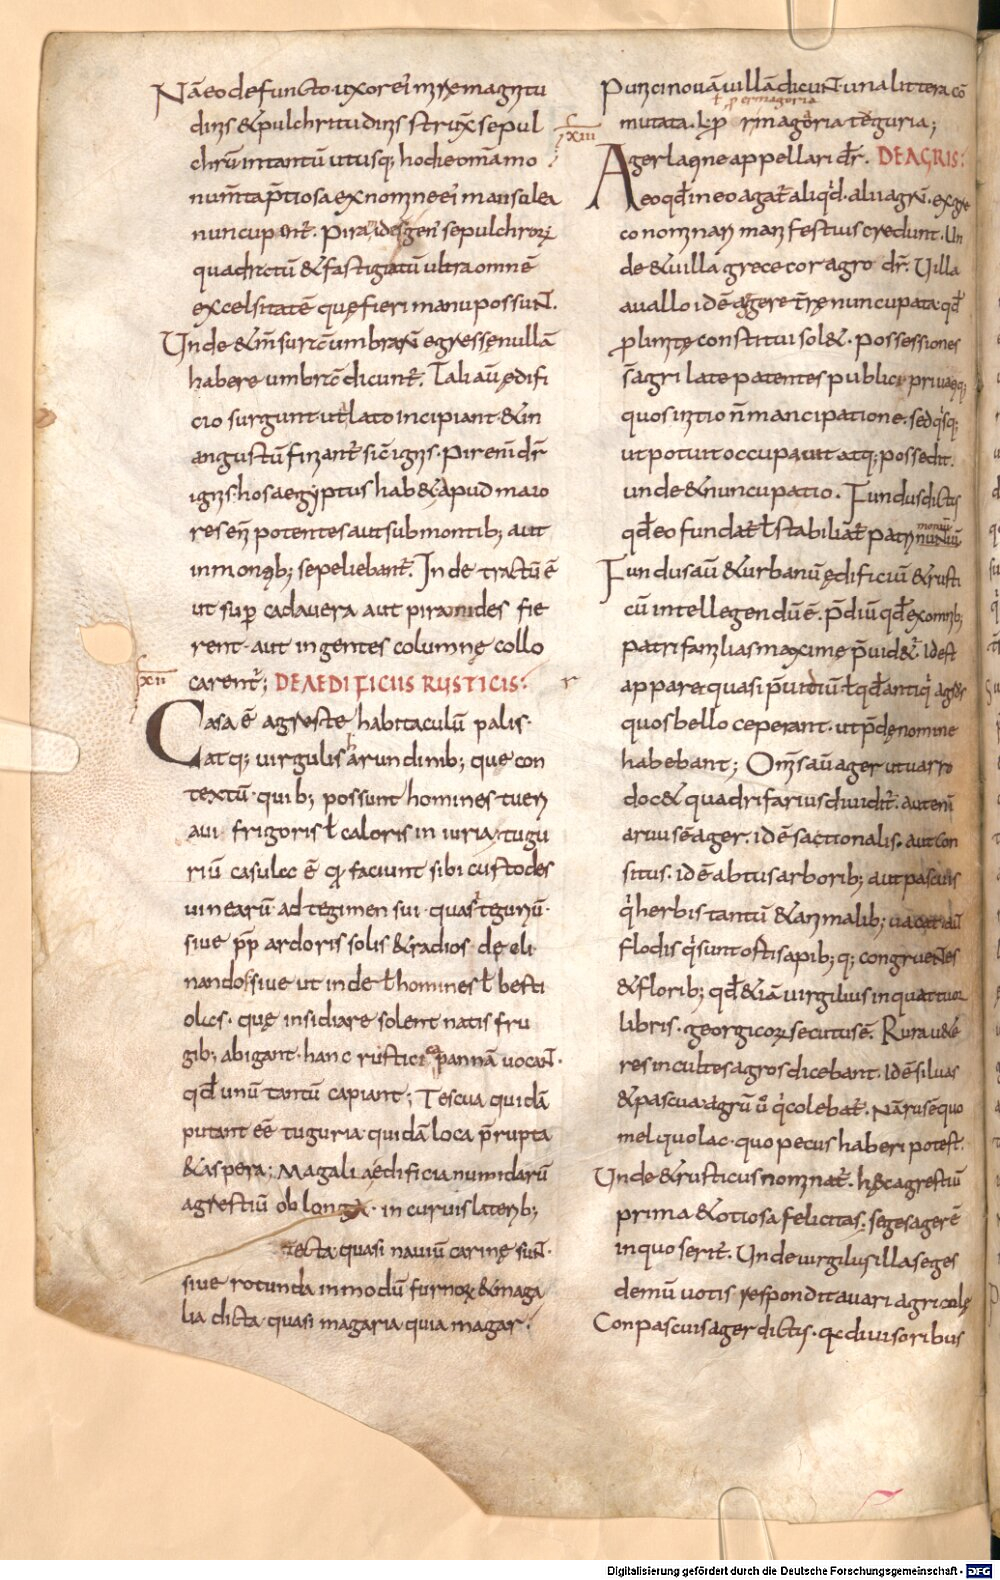 Nā eo defuncto uxor ei᷒ mire magnitu
dinis & pulchritudinis struxit sepul
chrū in tantū ut usq; hodie omā mo
num̄ta p̄tiosa ex nomine ei᷒ mausolea
nuncupent᷒. Piramides gen᷒ sepulchroꝝ
quadratū & fastigatū ultra omnē
excelsitatē que fieri manu possunt.
Unde & m̄surā umbrarū egresse nullā
habere umbrā dicunt᷒. Tali aū edifi
cio surgunt ut lato incipiant & in
angustū finiant᷒ sic̄ ignis. Pir enī dr̄
ignis. hos aegyptus hab& apud maio
res enī potentes aut sub montib; aut
in montib; sepeliebant᷒. Inde tractū ē
ut sup̄ cadavera aut piramides fie
rent. aut ingentes columnę collo
xii
carent᷒; DE AEDIFICIIS RUSTICIS:
Casa ē agreste habitaculū palis.
atq; virgulis arundinib; que con
textū. quib; possunt homines tueri
a vi frigoris ł caloris iniuria. tugu
riū casula ē quā faciunt sibi custodes
vinearū ad tegimen sui. quasi teguriū.
sive ꝓp̄ ardoris solis & radios. de eli
nandos. sive ut inde ł homines ł besti
olas. que insidiare solent natis fru
gib; abigant. hanc rustici capannā vocant.
qđ unū tantū capiant; Tescua quidā
putant ēē tuguria. quidā loca p̄rupta
& aspera; Magalia edificia numidarū
agrestiū oblonga. incurvis laterib;
tecta. quasi naviū carine sunt.
sive rotunda in modū furnoꝝ & maga
lia dicta. quasi magaria quia magar.
Punici novā villā dicunt. una littera cō
ł ꝑ r magaria
mutata. ł. ꝓ r magaria teguria;
xiii
Ager latine appellari dr̄. DE AGRIS:
A eo qđ in eo agat᷒ aliqđ. alii agrū. ex gre
co nominari manifestius credunt. Un
de & villa grece coragro dr̄. Villa
a vallo id ē aggere terrę nuncupata. qđ
ꝓ limite constitui sol&. Possessiones
s̄ agri late patentes publici privatiq;
quos initio n̄ mancipatione. sed qsq;
ut potuit occupavit atq; possedit.
unde & nuncupatio. Fundus dict᷒
qđ eo fundat᷒ ł stabiliat᷒ patri
monium
Fundus aū & urbanū edificiū & rusti
cū intellegendū ē. P̄diū qđ ex omnib;
patrifamilias maxime p̄vid&᷒. id est
appareat quasi p̄vidiū. ł qđ antiqi agros
quos bello ceperant. ut p̄dę nomine
habebant; Omīs aū ager ut varro
doc& quadrifarius dividit᷒. aut enī
arvus ē ager. id ē sationalis. aut con
situs. id ē abtus arborib; aut pascuus
q herbis tantū & animalib; vacat. aut
flodis q sunt ortis apib;q; congruentes
& florib; qđ & iā virgilius in quattuor
libris. georgicoꝝ secutus ē. Rura v&e
res incultos agros dicebant. id ē silvas
& pascua. agrū vo q colebat᷒. Nā rus ē quo
mel quo lac. quo pecus haberi potest.
Unde & rusticus nominat᷒. hęc agrestiū
prima & otiosa felicitas. seges ager ē
in quo serit᷒. Unde virgilius illa seges
demū votis respondit avari agricolę
Conpascuus ager dict᷒. qđ a divisoribus
Digitalisierung gefördert durch die Deutsche Forschungsgemeinschaft - DFG